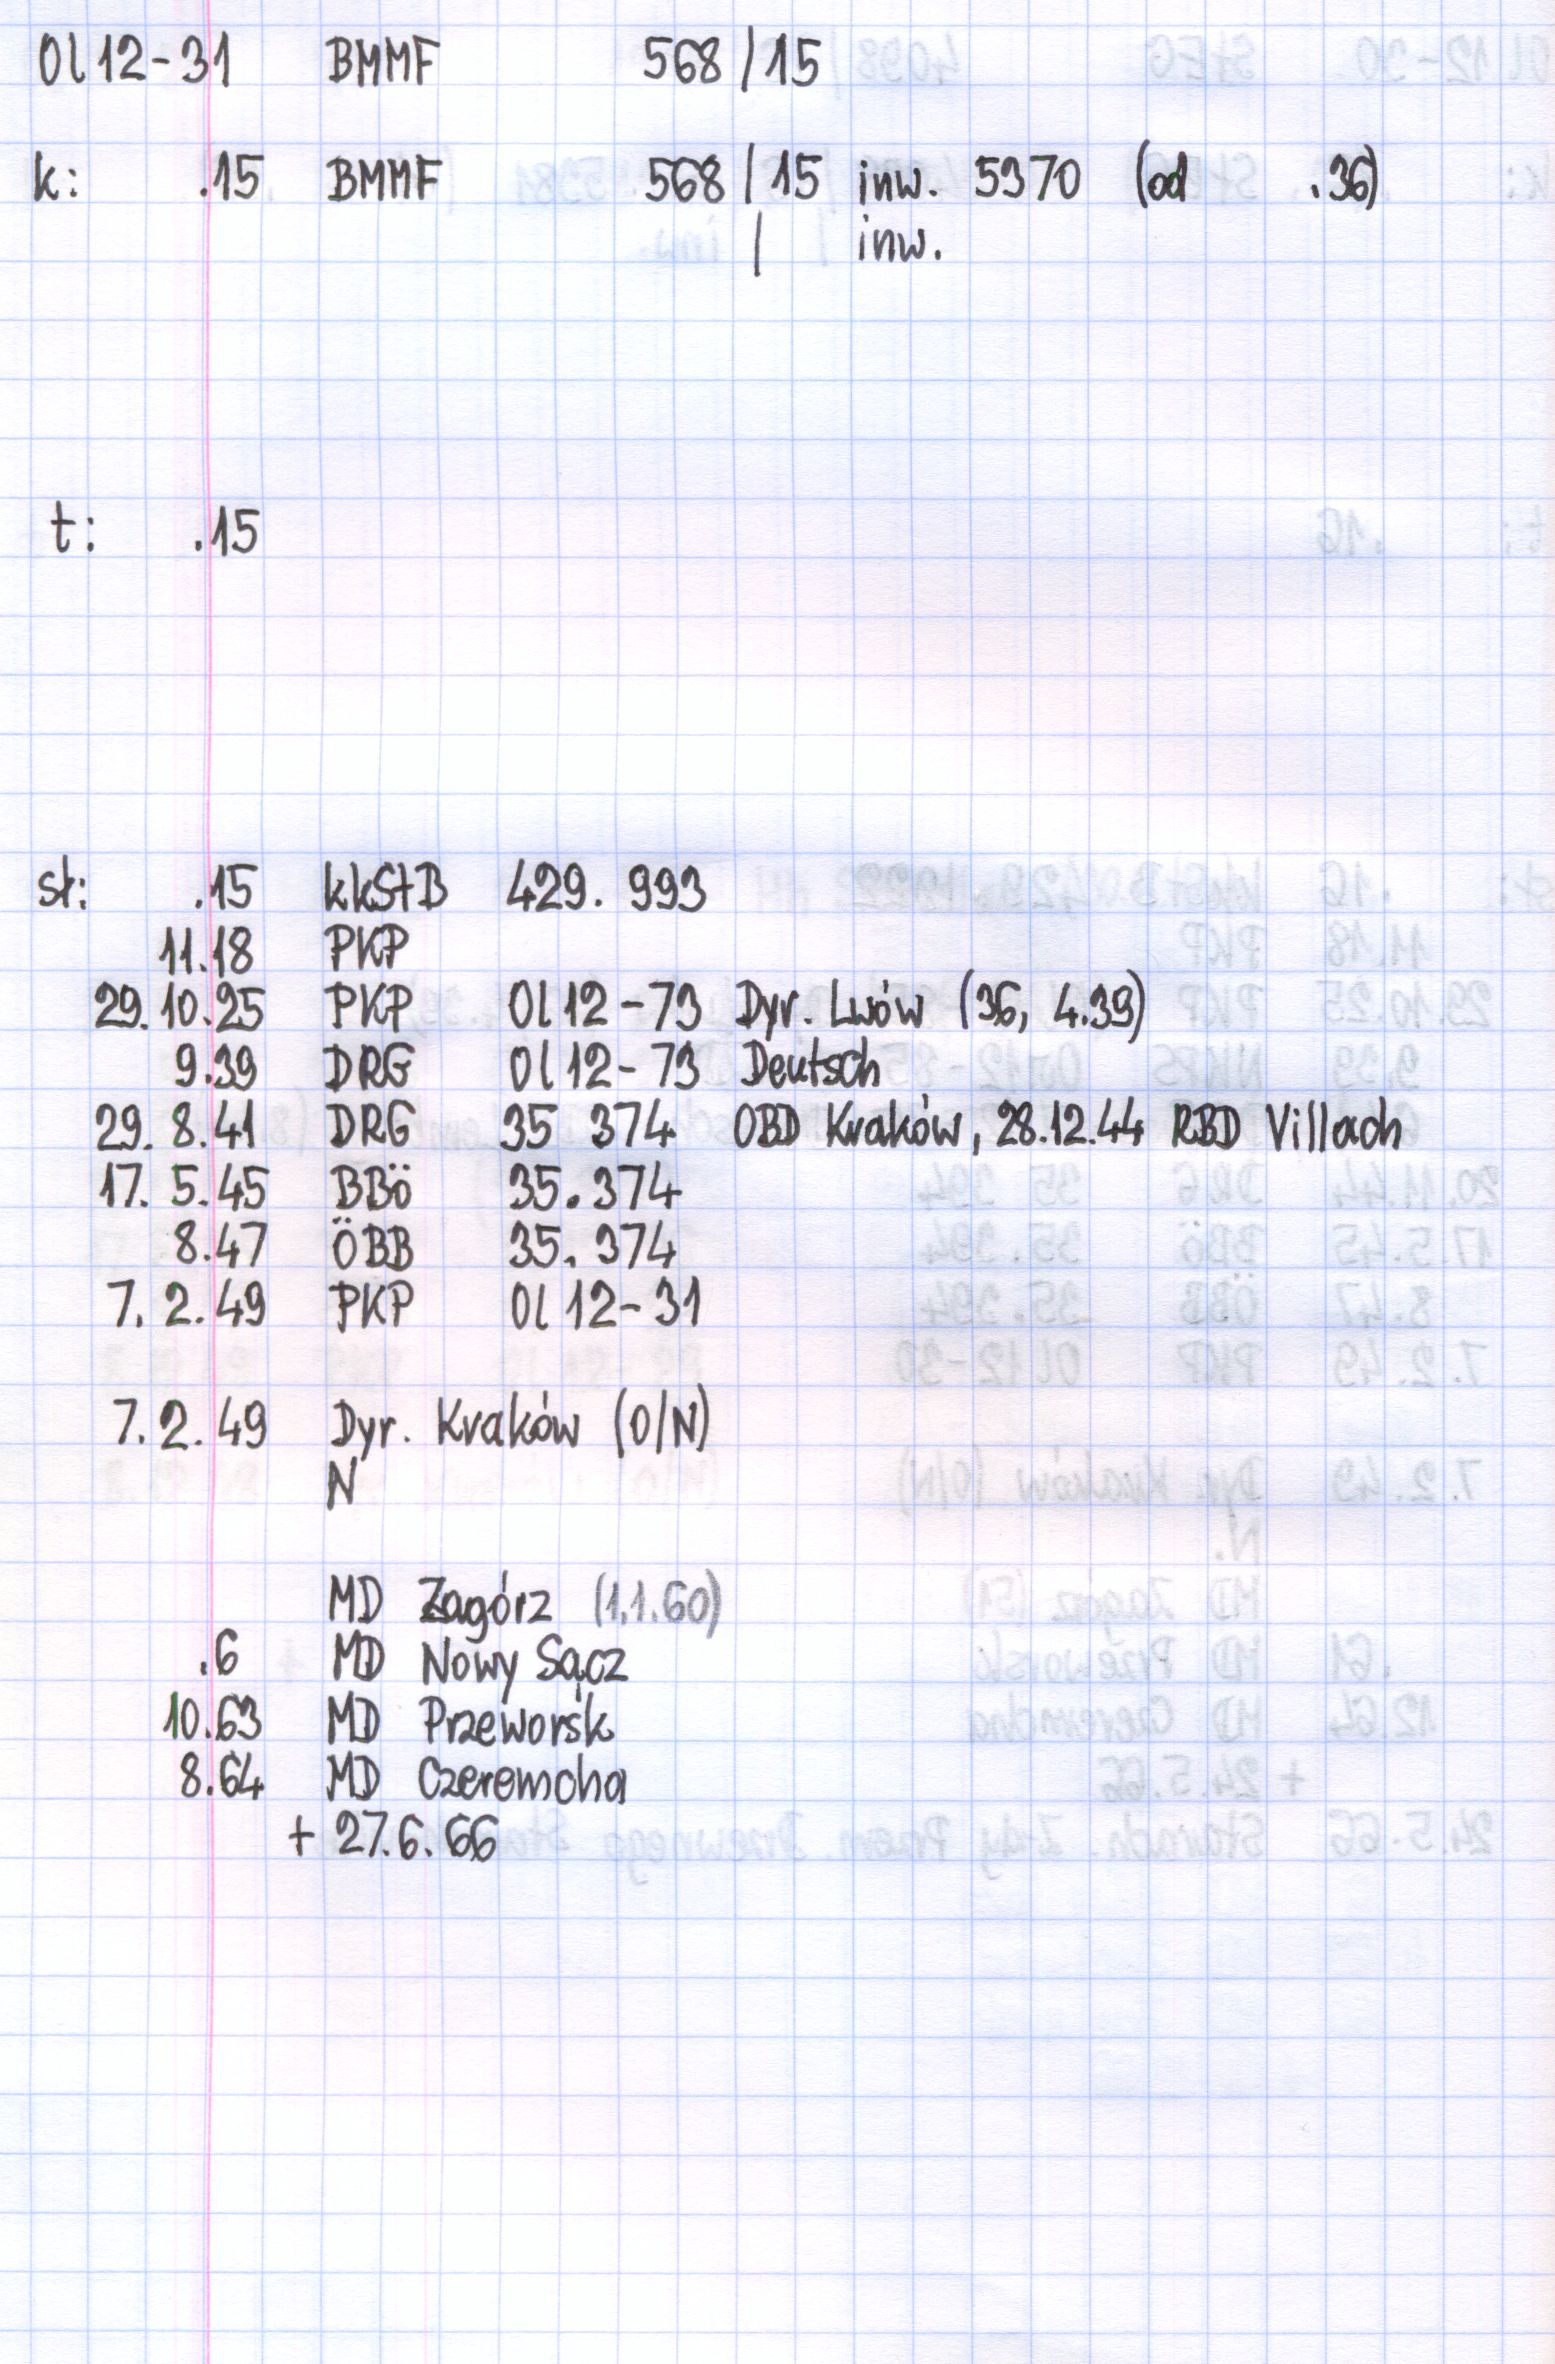 Ol12-31 BMMF 568/15
k: .15 BMMF 568/15 inw. 5970 (od .36)
/ inw.
t: .15
st: .15 kkStB 429. 993
11.18 PKP
29.10.25 PKP Ol12-73 Dyr. Lwów (36, 4.39)
9.39 DRG Ol12-73 Deutsch
29. 8.41 DRG 35 374 OBD Kraków, 28.12.44 RBD Villach
17. 5.45 BBö 35.374
8.47 ÖBB 35.374
7. 2.49 PKP Ol12-31
7.2.49 Dyr. Kraków (O/N)
N
MD Zagórz (1.1.60)
.6 MD Nowy Sącz
10.63 MD Przeworsk
8.64 MD Czeremcha
+ 27.6.66